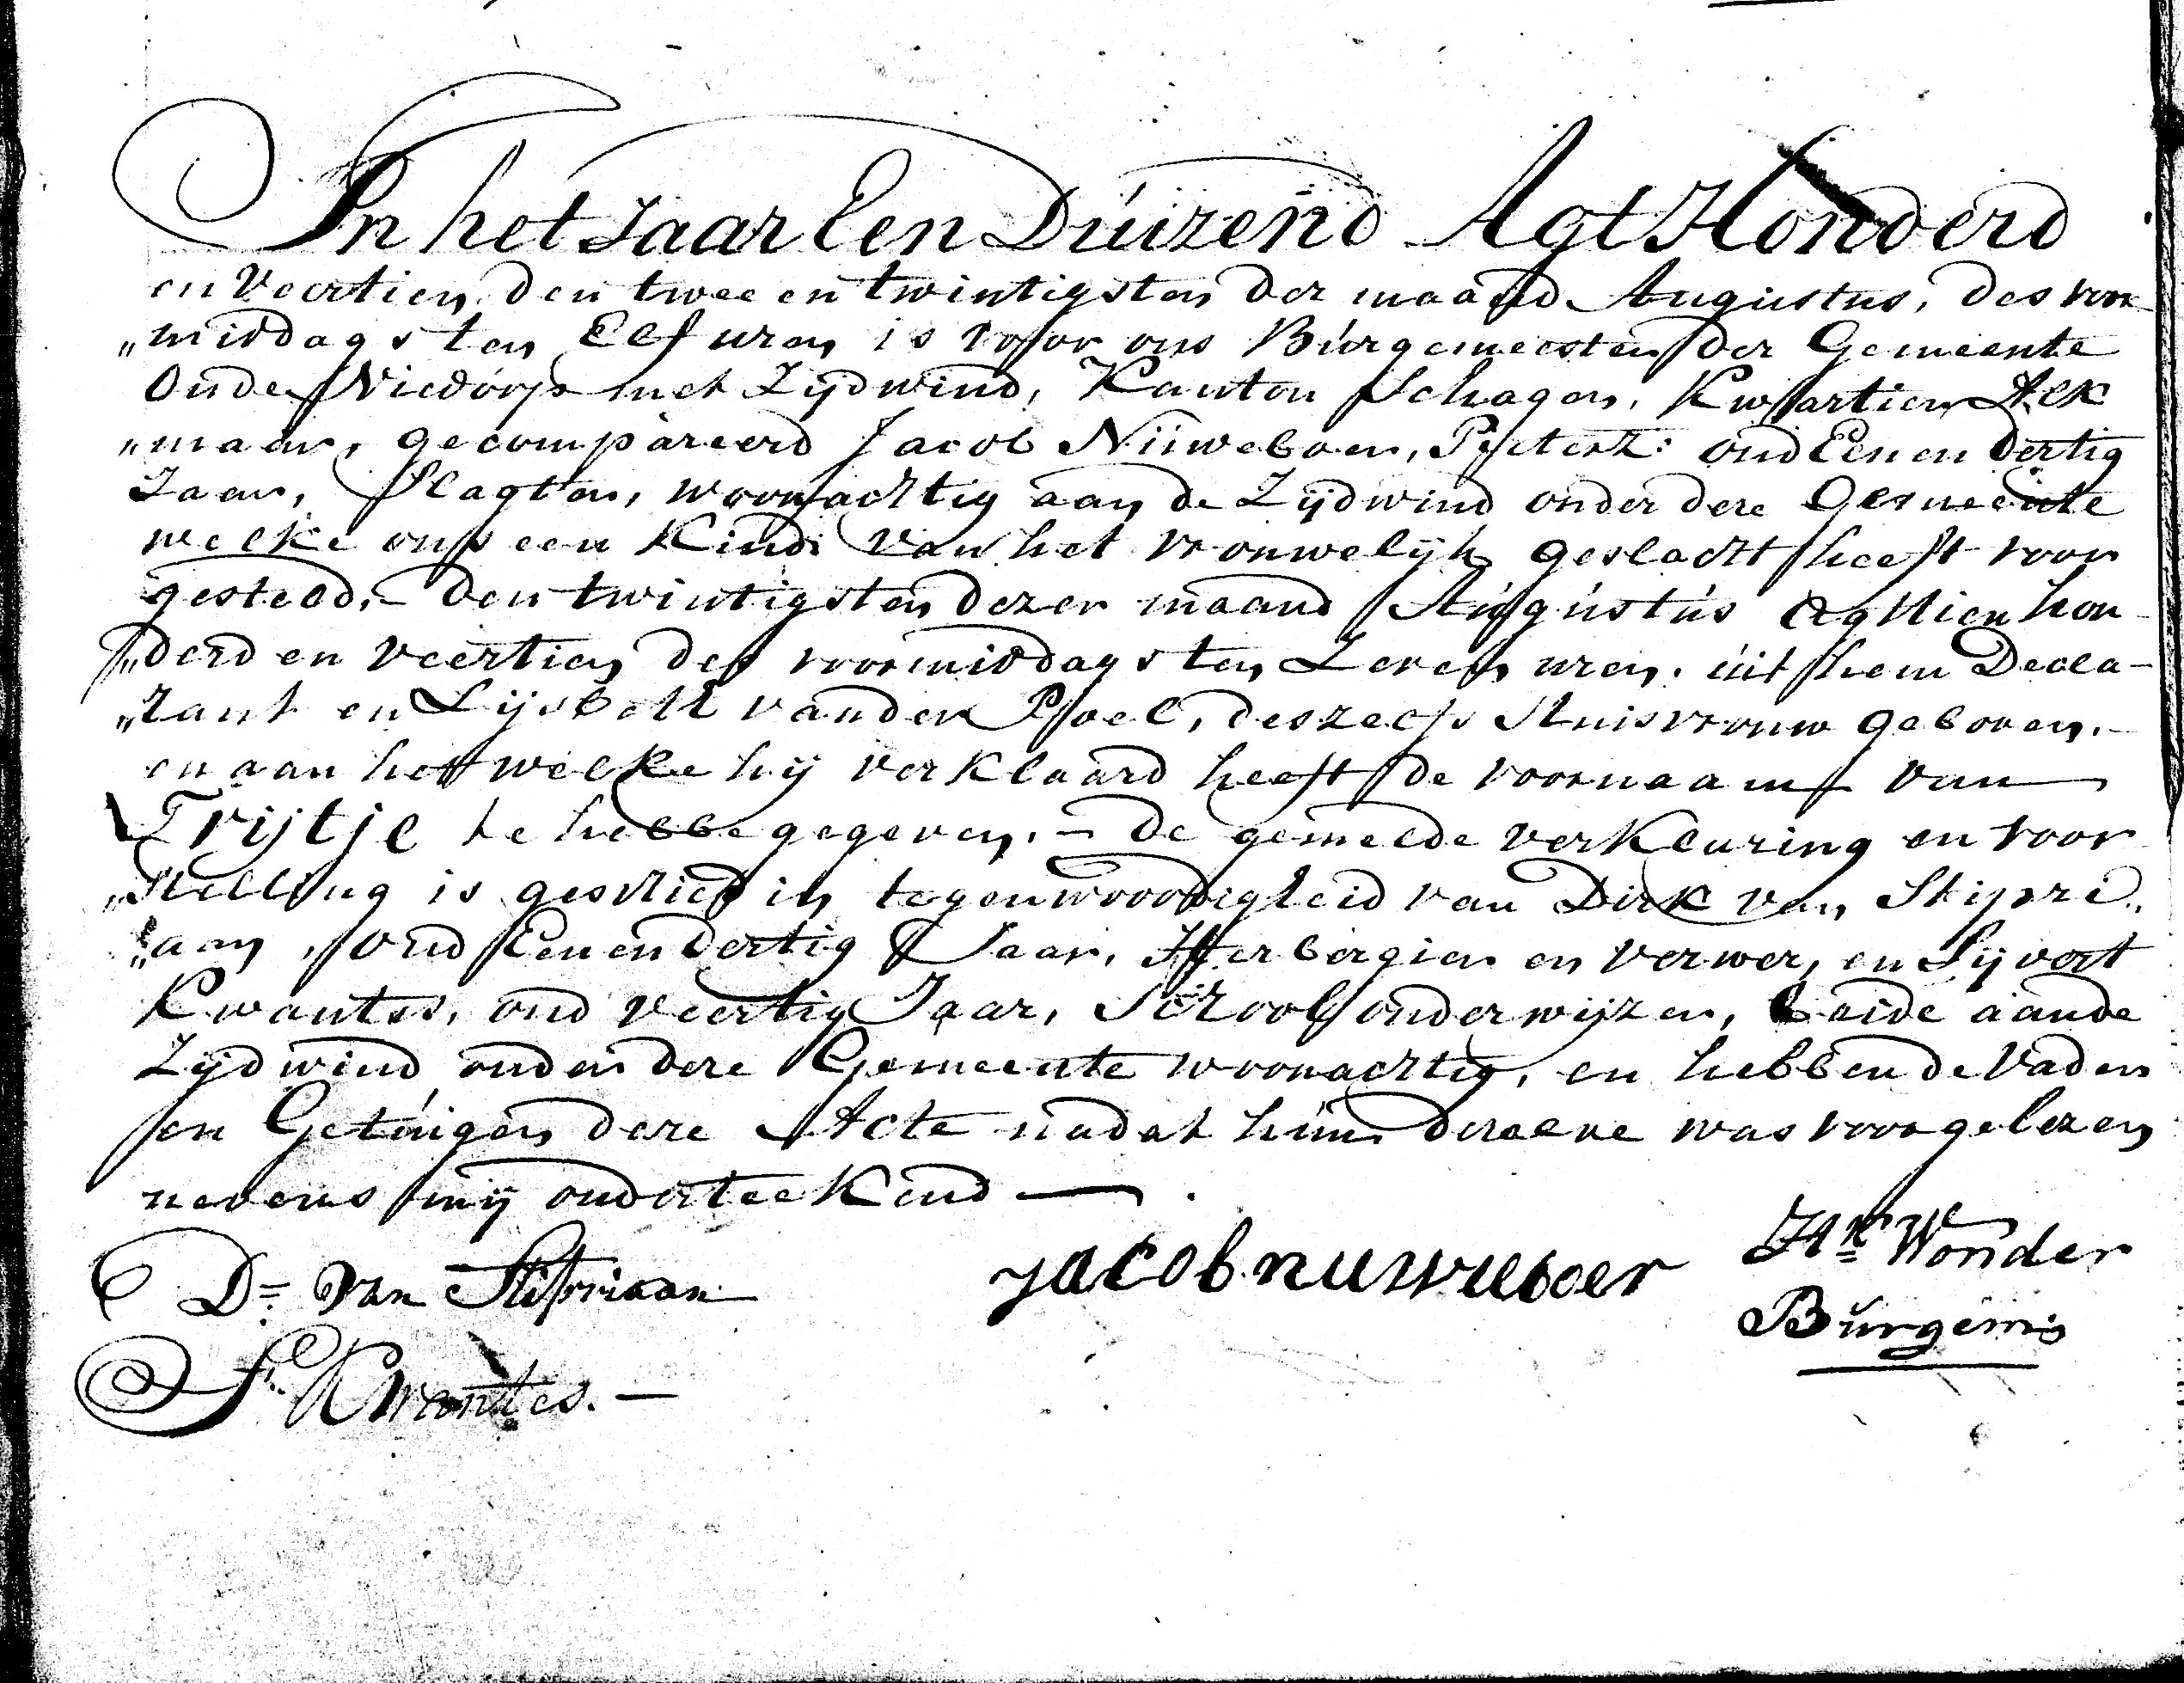 In het Jaar Een Duizend Agt Honderd
en Veertien, den twee en twintigsten der maand Augustus, des voor
„middags ten Elf uren, is voor ons Burgemeester der Gemeente
Oude Niedorp met Zijdwind, Kanton Schagen, Kwartier Alk
„maar, gecompareerd Jacob Nuweboer, Pieterz: oud Een en dertig
Jaar, Slagter, woonachtig aan de Zijdwind onder deze Gemeente
welke ons een Kind van het vrouwelijk geslacht heeft voor
gesteld, den twintigsten dezer maand Augustus Agttien hon
„derd en veertien des voormiddags ten Zeven uren, uit hem Decla-
„rant en Lijsbeth van der Poel, deszelfs Huisvrouw geboren,
en aan het welke hij verklaard heeft de voornaam van
Trijtje te hebbe gegeven. - De gemelde verklaring en voor
„stelling is geschied in tegenwoordigheid van Dirk van Stipri
„aan, oud Een en dertig Jaar, Herbergier en verwer, en Sijvert
Kwantes, oud veertig Jaar, School onderwijzer, beide aan de
Zijdwind onder deze Gemeente woonachtig, en hebben de Vader
en Getuigen deze Acte nadat hun dezelve was voorgelezen
nevens mij onderteekend
D= van Stipriaan
jacob nuweboer
Hk Wonder
Burgem:
S: Kwantes.